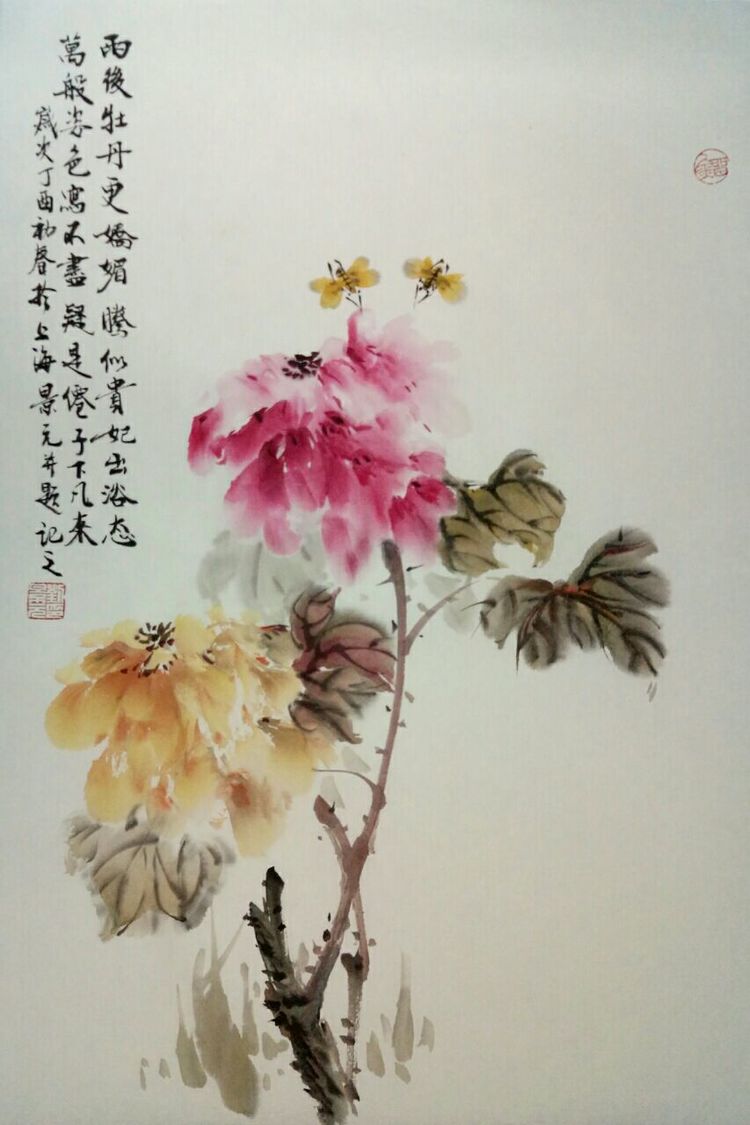 雨後牡丹更嬌媚勝似貴妃出浴态
萬般姿色寫不盡疑是僊子下凡来
歲次丁酉初春於上海景元并題記之